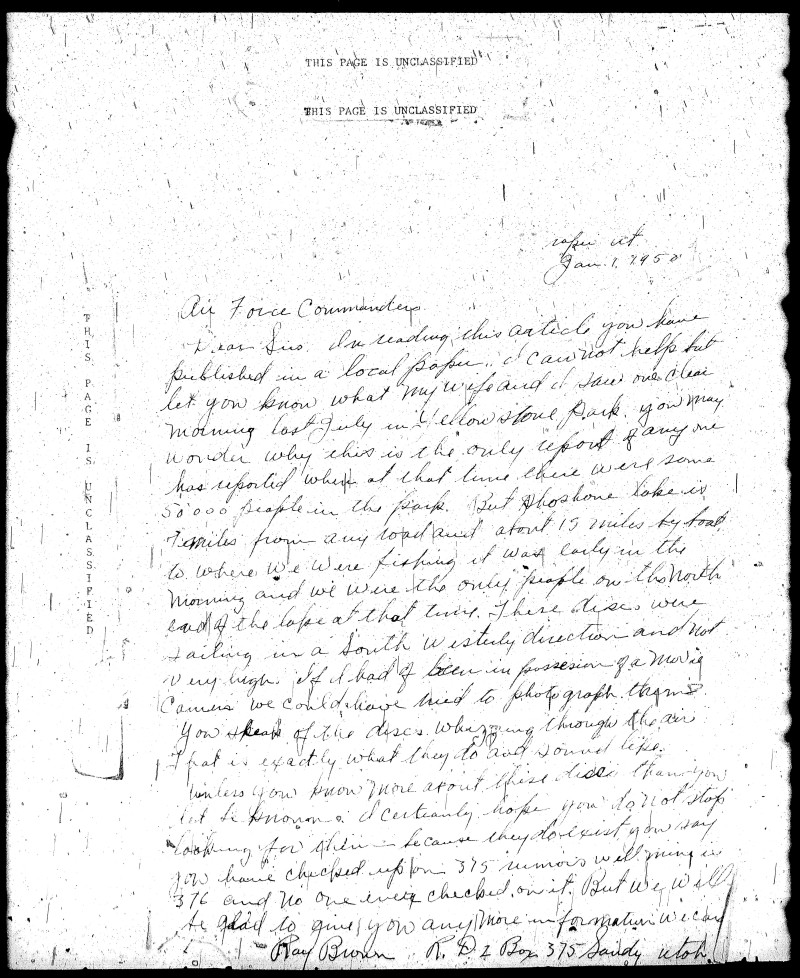 THIS PAGE IS UNCLASSIFIED
THIS PAGE IS UNCLASSIFIED
ut
Jan. 1, 1950
Air Force Commanders
Dear Sirs, In reading this article you have
published in a local paper, I can not help but
let you know what my wife and I saw one clear
morning last July in Yellow stone Park. you may
wonder why this is the only report of any one
has reported when at that time there were some
50000 people in the park. But Shoshone lake is
7 miles from any road and about 15 miles by boat
to where we were fishing it was early in the
morning and we were the only people on the North
end of the lake at that time. These discs were
sailing in a South Westerly direction and not
very high. If I had of been in possesion of a Movie
Camera we could have tried to photograph them
you speak of the discs whizzing through the air
That is exactly what they do and sound like.
unless you know more about these discs than you
let be known I certainly hope you do not stop
looking for them because they do exist you say
you have checked up on 375 rumors well mine is
376 and no one ever checked on it. But We Will
be glad to give you any more information we can
Ray Brown R. D 2 Box 375 Sandy utah.
THIS PAGE IS UNCLASSIFIED